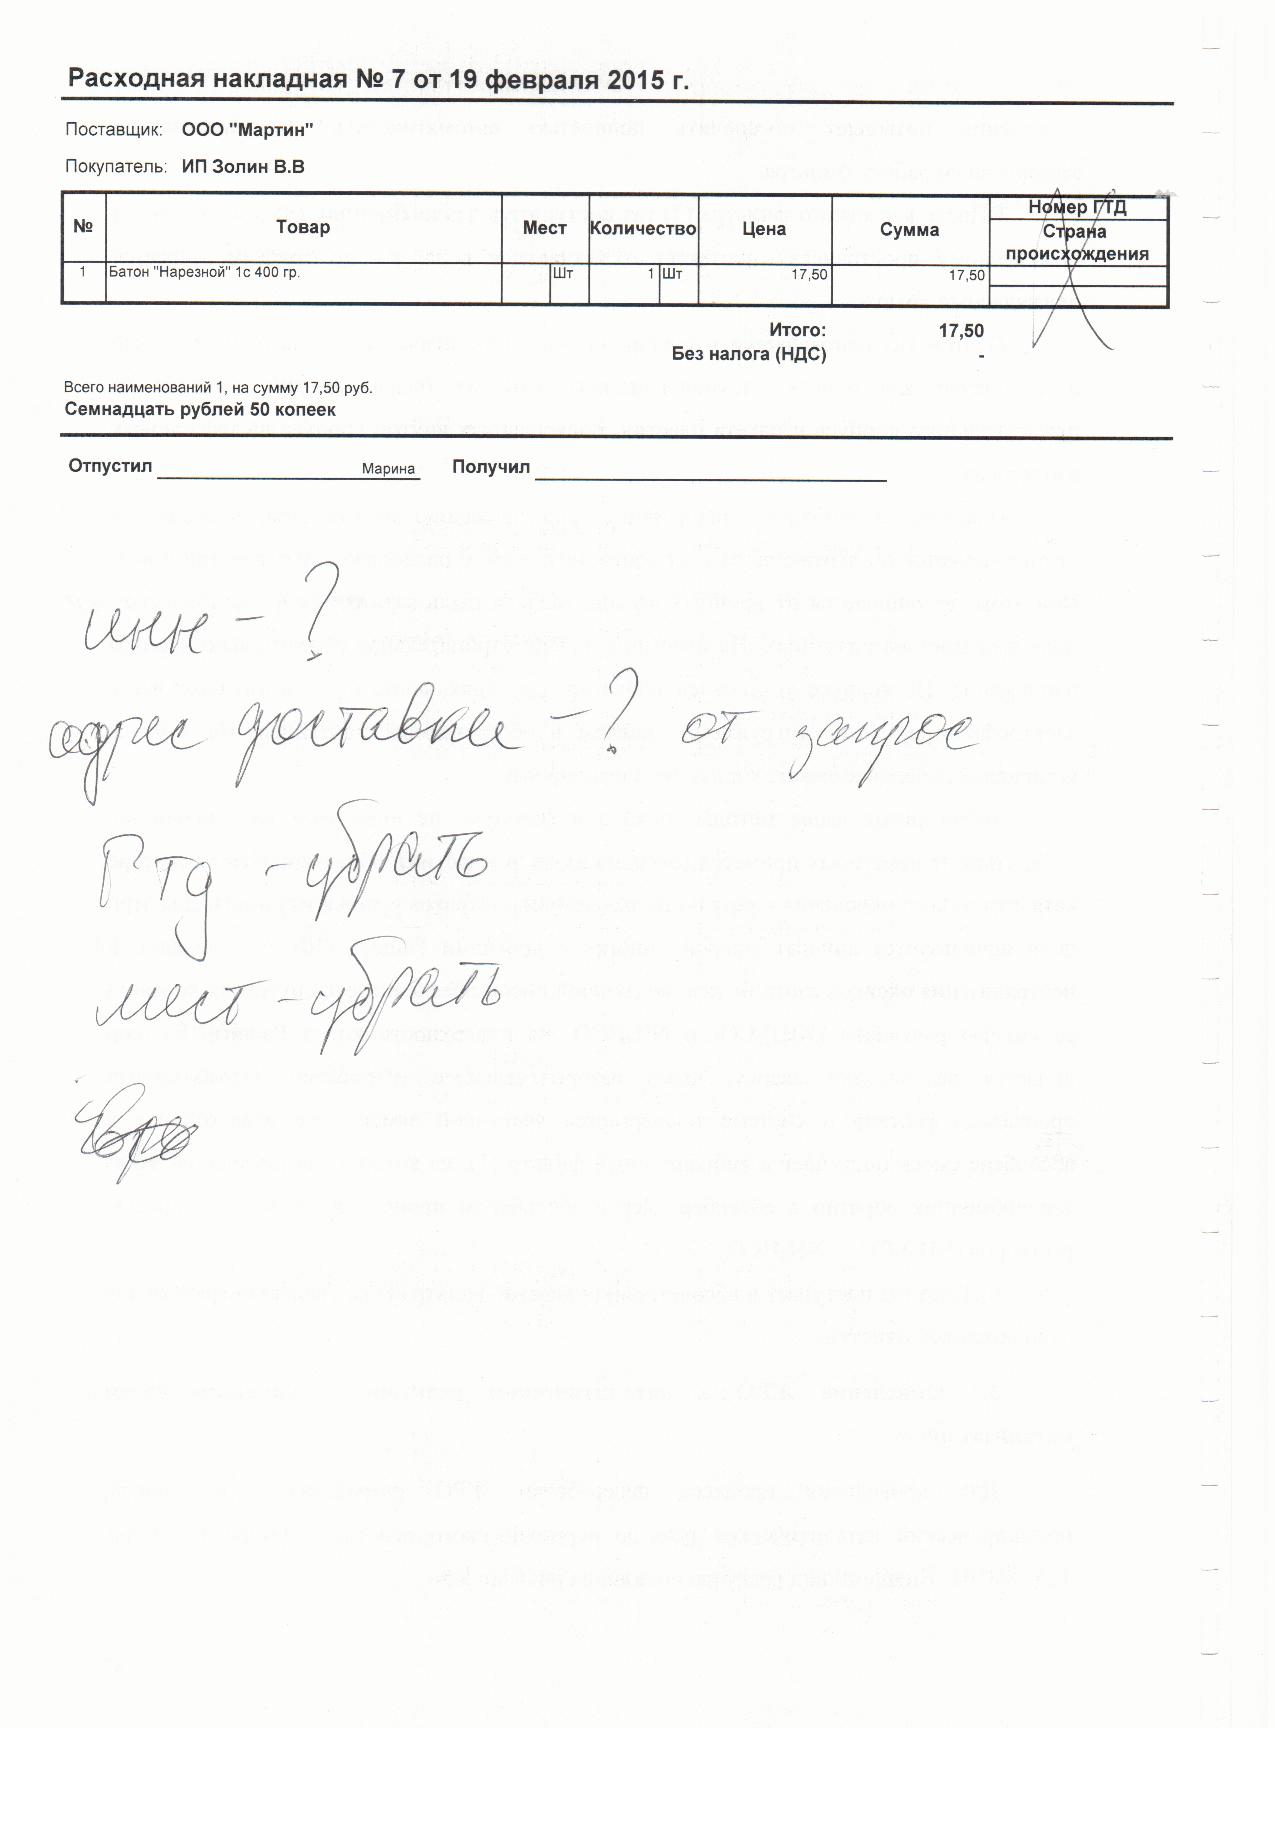 Расходная накладная № 7 от 19 февраля 2015 г.
Поставщик: ООО "Мартин"
Покупатель: ИП Золин В.В
№ Товар Мест Количество Цена Сумма Номер ГТД
Страна происхождения
1 Батон "Нарезной" 1с 400 гр. Шт 1 Шт 17,50 17,50
Итого: 17,50
Без налога (НДС) -
Всего наименований 1, на сумму 17,50 руб.
Семнадцать рублей 50 копеек
Отпустил Марина Получил
инн - ?
адрес доставки - ? от запрос
ГТД - убрать
мест - убрать